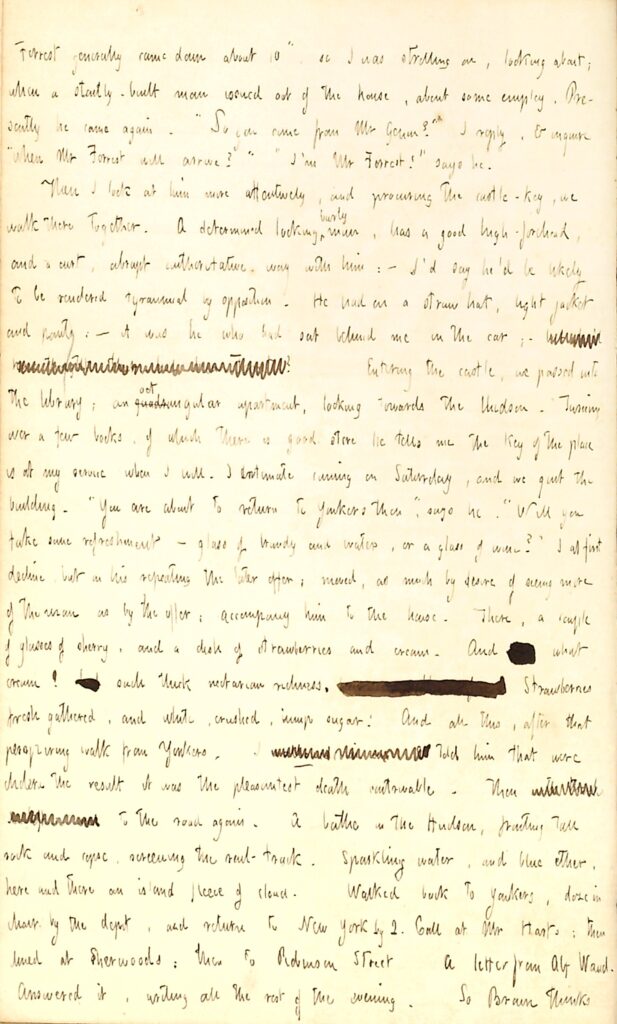 Forrest generally came down about 10" so I was strolling on, looking about;
when a stoutly-built man issued out of the house, about some employ. Pre-
sently he came again. "So you came from Mr Genin?" I reply, & inquire
"when Mr Forrest will arrive?" "I'm Mr Forrest!" says he.
Then I look at him more attentively, and procuring the castle-key, we
walk there together. A determined looking, burly man, has a good high-forehead,
and a curt, abrupt authoritative way with him :— I'd say he'd be likely
to be rendered tyrannical by opposition. He had on a straw hat, light jacket
and pants; — it was he who had sat behind me in the car ; —
Entering the castle, we passed into
the library; an octangular apartment, looking towards the Hudson. Turning
over a few books, of which there is good store he tells me the key of the place
is at my service when I will. I intimate coming on Saturday, and we quit the
building. "You are about to return to Yonkers then", says he. "Will you
take some refreshment — glass of brandy and water, or a glass of wine?" I at first
decline but on his repeating the later offer; moved, as much by desire of seeing more
of the man as by the offer; accompany him to the house. There, a couple
of glasses of sherry, and a dish of strawberries and cream. And what
cream! such thick nectarian richness. Strawberries
fresh gathered, and white, crushed, lump sugar! And all this, after that
perspiring walk from Yonkers. I told him that were
cholera the result it was the pleasantest death contrivable. Then
to the road again. A bathe in the Hudson, fronting tall
rock and copse, screening the rail-track. Sparkling water, and blue ether,
here and there an island fleece of cloud. Walked back to Yonkers, doze in
chair by the depot, and return to New York by 2. Call at Mr Harts; then
dined at Sherwoods; then to Robinson Street A letter from Alf Waud.
Answered it, writing all the rest of the evening. So Brain thinks